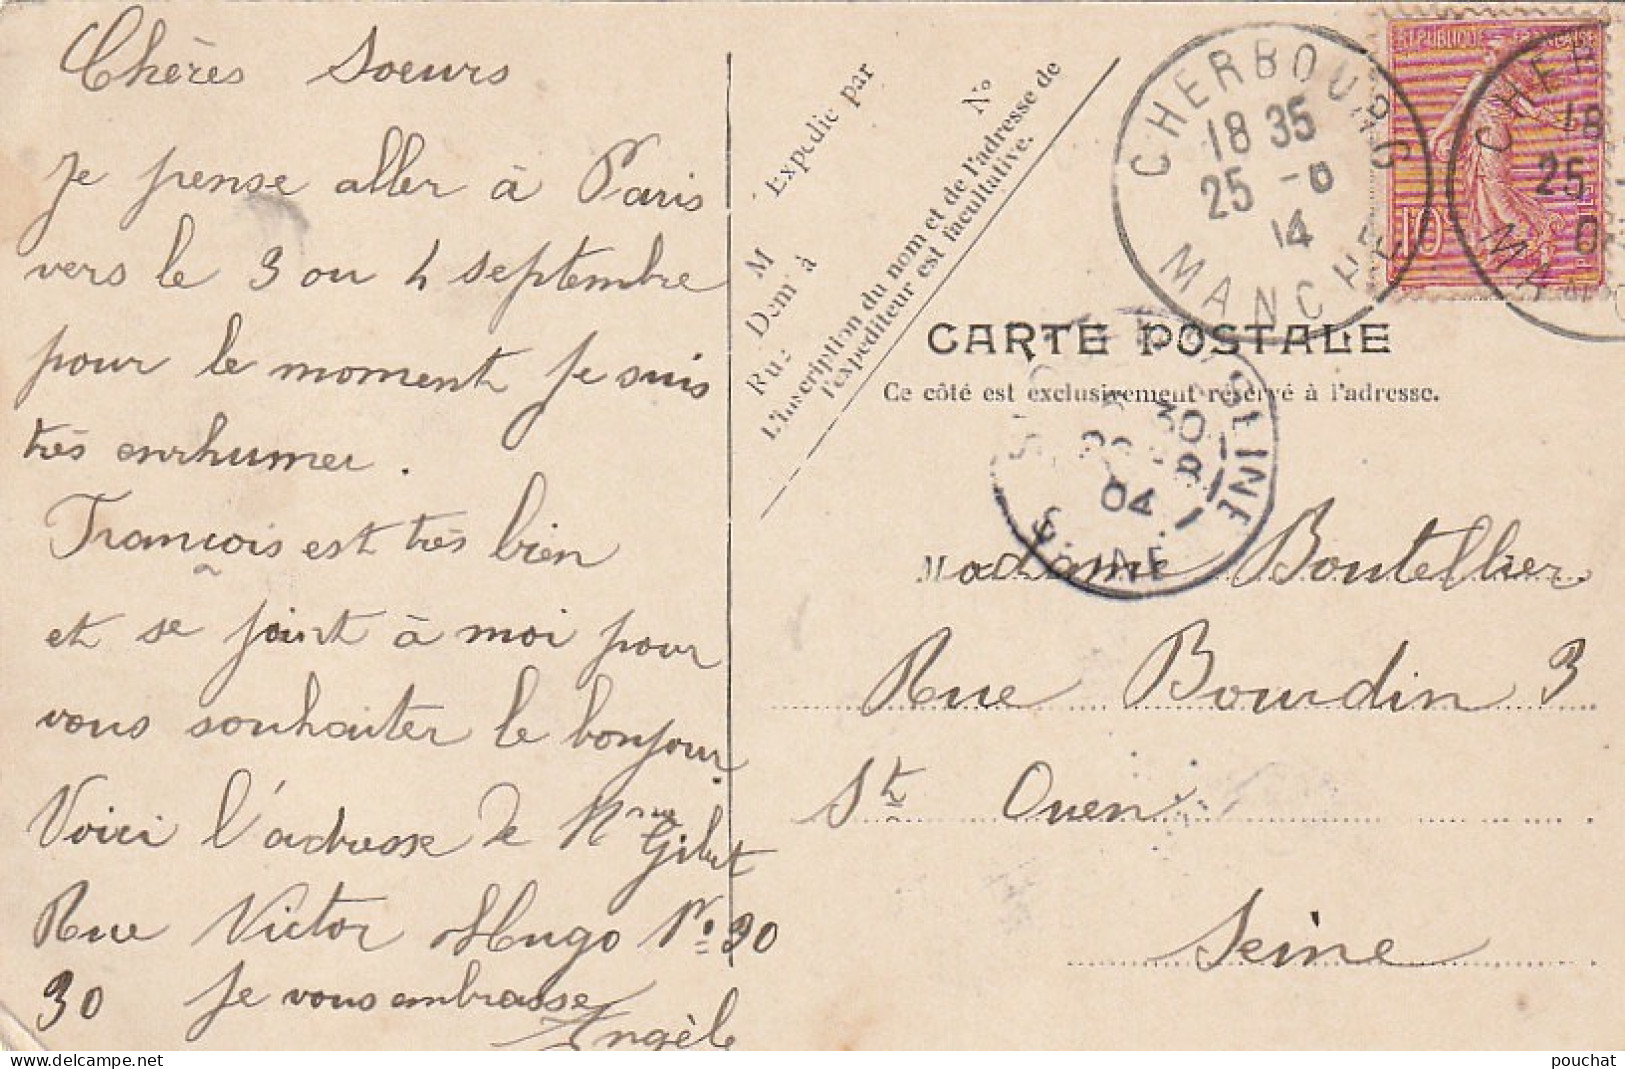 Chères Soeurs
Je pense aller à Paris
vers le 3 ou 4 septembre
pour le moment je suis
très enrhumer.
François est très bien
et se joint à moi pour
vous souhaiter le bonjour.
Voici l'adresse de Mme
Gilbt
Rue Victor Hugo No 30
30 Je vous embrasse
Angèle
Expédie par
M
Dem à
Rue
No
L'Inscription du nom et de l'adresse de
l'expéditeur est facultative.
CHERBOURG
18 35
25 -8
14
MANCHE
REPUBLIQUE FRANÇAISE
10
CHER
18
25
0
MAN
CARTE POSTALE
Ce côté est exclusivement réservé à l'adresse.
SEINE
30
04
SEINE
Madame Boutellier
Rue Bourdin 3
St Ouen
Seine
pouchat